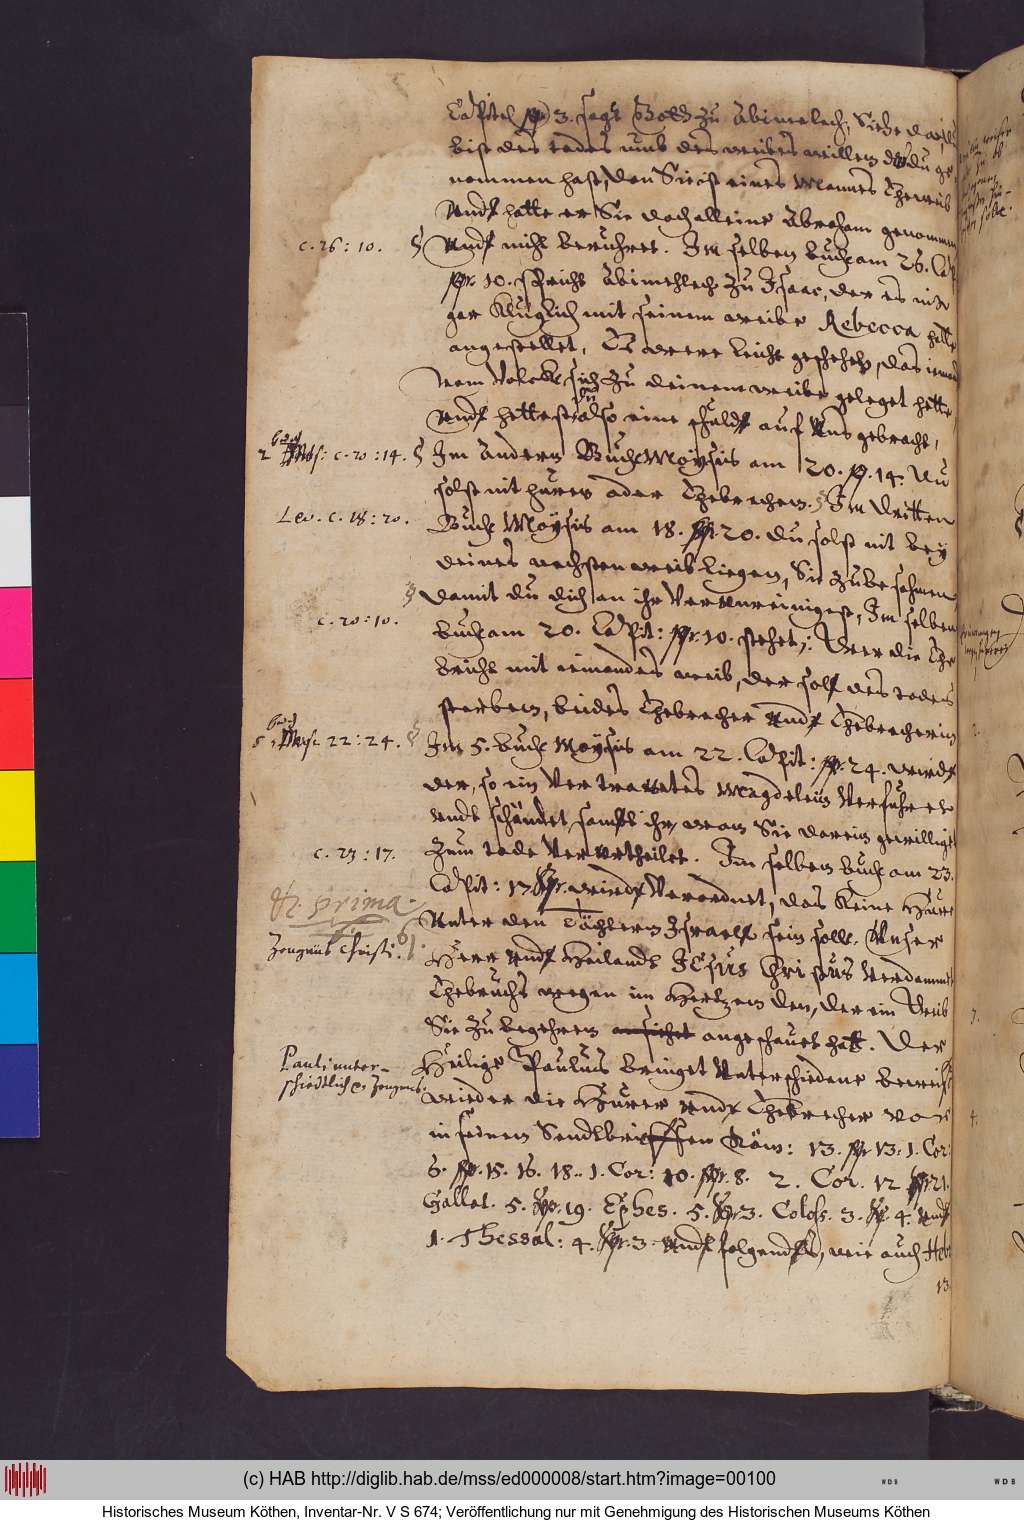 Capitel 3. sagt Gott zu Abimelech, Siehe da, du
bist des todes umb des weibes willen daß du ge-
nommen hast, den Sie ist eines Mannes Eheweib
Undt hatte er Sie doch alleine Abraham genommen
c. 26 : 10. § Undt nicht beruhret. Im selben buch am 26. Cap:
10. spricht Abimehlech zu Isaac, der es nit
gar Klüglich mit seinem weibe Rebecca hatte
angestellet, Es were leicht geschehen, das iemand
vom Volcke sich zu deinem weibe geleget hette,
Undt hettest du also eine schuldt auf Uns gebracht,
buch
2 Mos: c. 20 : 14. § Im Andern Buch Moysis am 20. 14. Du
solst nit huren oder Ehebrechen. § Im Dritten
Lev. c. 18 : 20. Buch Moysis am 18. 20. Du solst nit bey
deines nechsten weib liegen, Sie zu besahmen,
§ damit du dich an ihr Verunreinigest, Im selben
c. 20 : 10. buch am 20. Capit: 10. stehet: Wer die Ehe
bricht mit iemandes weib, der soll des todes
sterben, beides Ehebrecher Undt Ehebrecherin
buch
5 Moys: 22 : 24. § Im 5. buch Moysis am 22. Capit: 24. wirdt
der, so ein Vertrawetes Magdelein Verfuhret
undt schändet, sampt ihr, wan Sie darein gewilliget
c. 23 : 17. Zum tode Verurtheilet. Im selben buch am 23.
Capit: 17. wirdt Verordnet, das Keine Hure
Unter den Töchtern Israell sein solle. Unser
Zeugnüs Christi. Herr Undt Heilandt JEsus Christus Verdammet
Ehebruchs wegen im Hertzen den, der ein Weib
Sie zu begehren ansichet angeschauet hatt. Der
Pauli unter-
schiedtliche Zeugnis. Heilige Paulus bringet Unterschiedene beweiß
wieder die Hurer Undt Ehebrecher vor
in seinen Sendtbrieffen Röm: 13. 13. 1. Cor:
6. 15. 16. 18. 1. Cor: 10. 8. 2. Cor. 12 21.
Gallat. 5. 19. Ephes. 5. 3. Coloss. 3. 4. Undt
1. Thessal: 4. 3. Undt folgendts, wie auch Heb:
13.
(c) HAB http://diglib.hab.de/mss/ed000008/start.htm?image=00100
WDB
WDB
Historisches Museum Köthen, Inventar-Nr. V S 674; Veröffentlichung nur mit Genehmigung des Historischen Museums Köthen